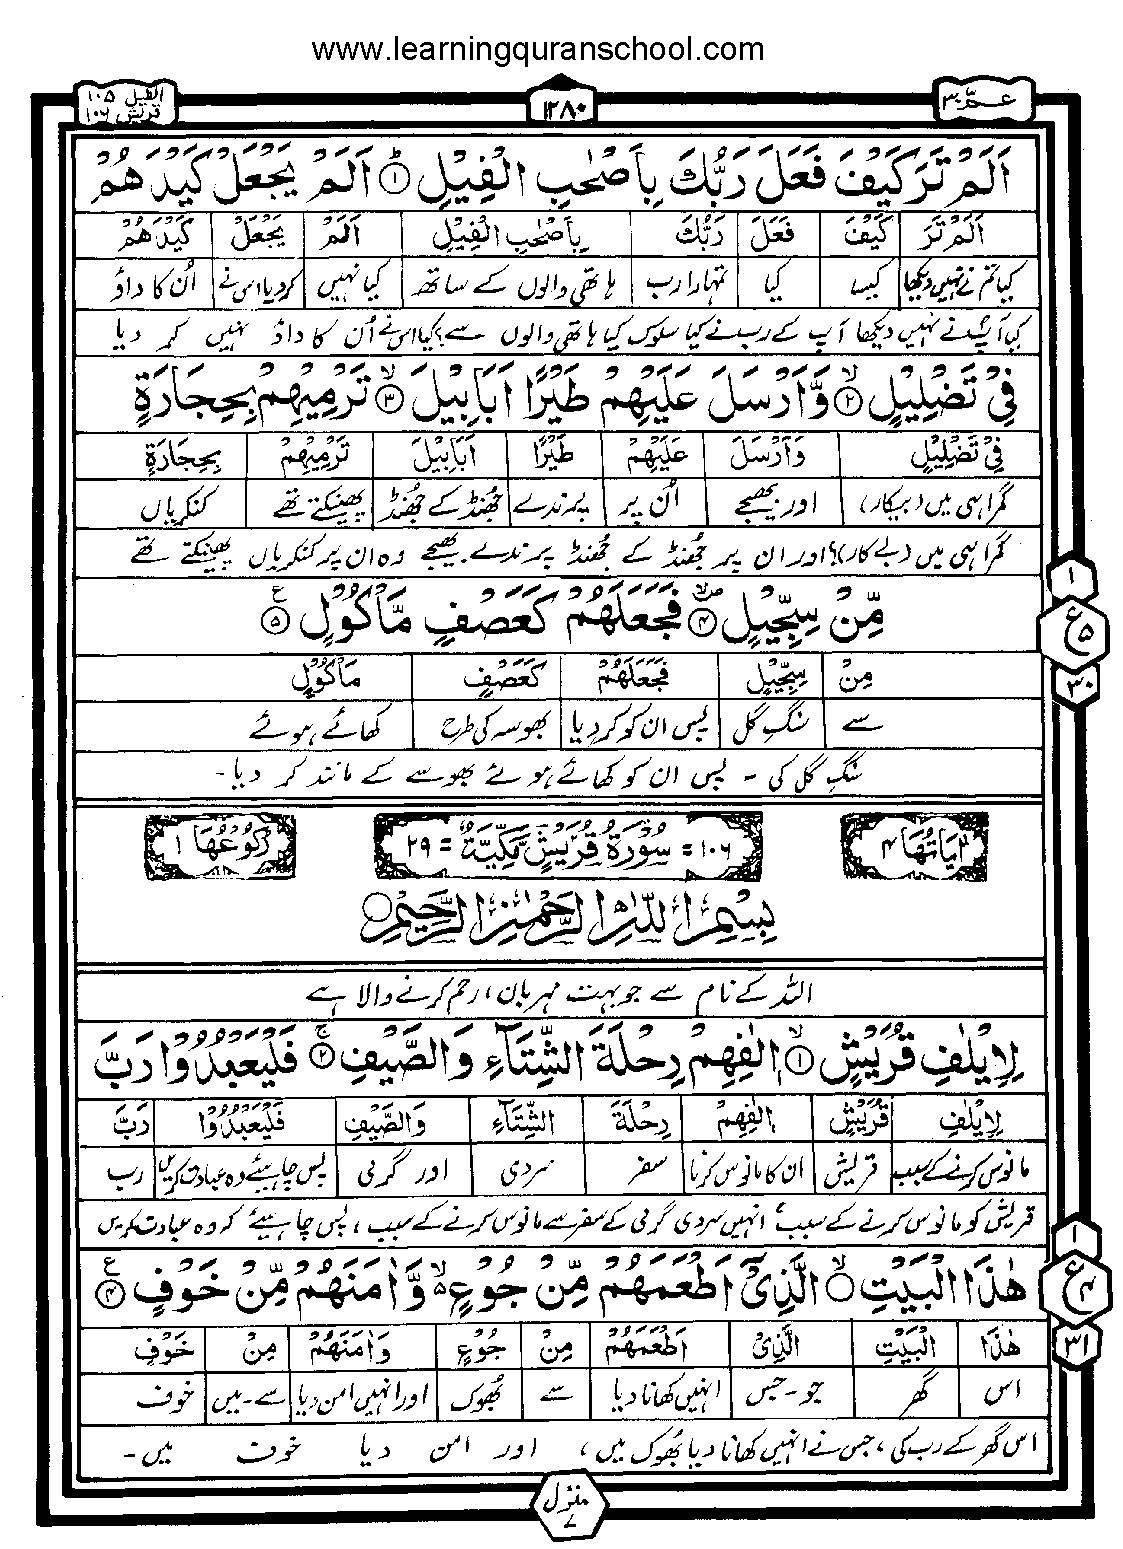 www.learningquranschool.com
عم ۳۰
۱۲۸۰
الفیل ۱۰۵
قریش ۱۰۶
اَلَمْ تَرَ كَیْفَ فَعَلَ رَبُّكَ بِاَصْحٰبِ الْفِیْلِ ۱ اَلَمْ یَجْعَلْ كَیْدَهُمْ
اَلَمْ تَرَ كَیْفَ فَعَلَ رَبُّكَ بِاَصْحٰبِ الْفِیْلِ اَلَمْ یَجْعَلْ كَیْدَهُمْ
کیا تم نے نہیں دیکھا کیسا کیا تمہارا رب ہاتھی والوں کے ساتھ کیا نہیں کر دیا اس نے اُن کا داؤ
کیا آپ نے نہیں دیکھا آپ کے رب نے کیا سلوک کیا ہاتھی والوں سے؟ کیا اس نے اُن کا داؤ نہیں کر دیا
فِیْ تَضْلِیْلٍ ۲ وَّاَرْسَلَ عَلَیْهِمْ طَیْرًا اَبَابِیْلَ ۳ تَرْمِیْهِمْ بِحِجَارَةٍ
فِیْ تَضْلِیْلٍ وَاَرْسَلَ عَلَیْهِمْ طَیْرًا اَبَابِیْلَ تَرْمِیْهِمْ بِحِجَارَةٍ
گمراہی میں (بیکار) اور بھیجے اُن پر پرندے جُھنڈ کے جُھنڈ پھینکتے تھے کنکریاں
گمراہی میں (بے کار)؟ اور ان پر جُھنڈ کے جُھنڈ پرندے بھیجے وہ ان پر کنکریاں پھینکتے تھے
مِّنْ سِجِّیْلٍ ۴ فَجَعَلَهُمْ كَعَصْفٍ مَّاْكُوْلٍ ۵
مِنْ سِجِّیْلٍ فَجَعَلَهُمْ كَعَصْفٍ مَاْكُوْلٍ
سے سنگِ گل پس ان کو کر دیا بھوسہ کی طرح کھائے ہوئے
سنگِ گل کی ۔ پس ان کو کھائے ہوئے بھوسے کے مانند کر دیا۔
۱
ع ۵
۳۰
اٰیَاتُهَا ۴
۱۰۶ = سُوْرَةُ قُرَیْشٍ مَّكِّیَّةٌ = ۲۹
رُكُوْعُهَا ۱
بِسْمِ اللّٰهِ الرَّحْمٰنِ الرَّحِیْمِ
اللہ کے نام سے جو بہت مہربان، رحم کرنے والا ہے
لِاِیْلٰفِ قُرَیْشٍ ۱ اٖلٰفِهِمْ رِحْلَةَ الشِّتَآءِ وَالصَّیْفِ ۲ فَلْیَعْبُدُوْا رَبَّ
لِاِیْلٰفِ قُرَیْشٍ اٖلٰفِهِمْ رِحْلَةَ الشِّتَآءِ وَالصَّیْفِ فَلْیَعْبُدُوْا رَبَّ
مانوس کرنے کے سبب قریش ان کا مانوس کرنا سفر سردی اور گرمی پس چاہیئے وہ عبادت کریں رب
قریش کو مانوس کرنے کے سبب، انہیں سردی گرمی کے سفر سے مانوس کرنے کے سبب، پس چاہیئے کہ وہ عبادت کریں
هٰذَا الْبَیْتِ الَّذِیْۤ اَطْعَمَهُمْ مِّنْ جُوْعٍ وَّاٰمَنَهُمْ مِّنْ خَوْفٍ ۴
هٰذَا الْبَیْتِ الَّذِیْ اَطْعَمَهُمْ مِنْ جُوْعٍ وَاٰمَنَهُمْ مِنْ خَوْفٍ
اس گھر جو۔جس انہیں کھانا دیا سے بُھوک اور انہیں امن دیا سے۔میں خوف
اس گھر کے رب کی، جس نے انہیں کھانا دیا بُھوک میں، اور امن دیا خوف میں۔
۱
ع ۴
۳۱
منزل ۷